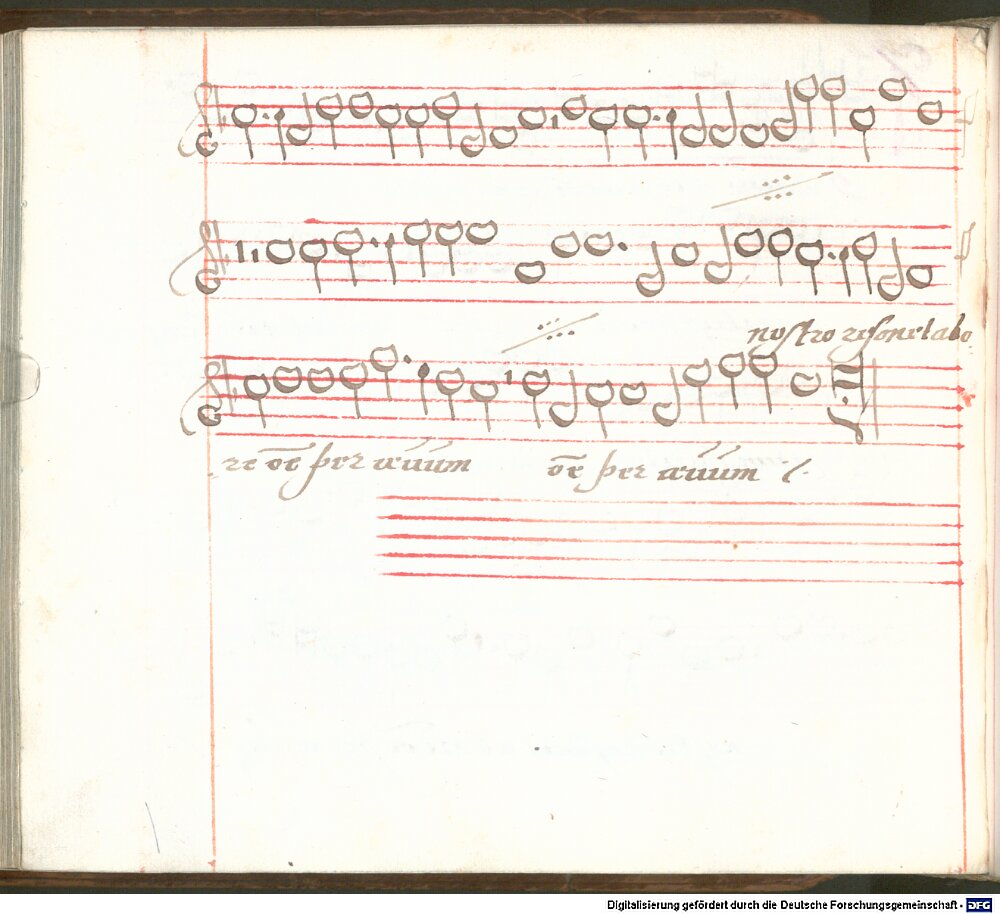 nostro resonet ab o-
re oē per aeuum oē per aeuum
Digitalisierung gefördert durch die Deutsche Forschungsgemeinschaft - DFG